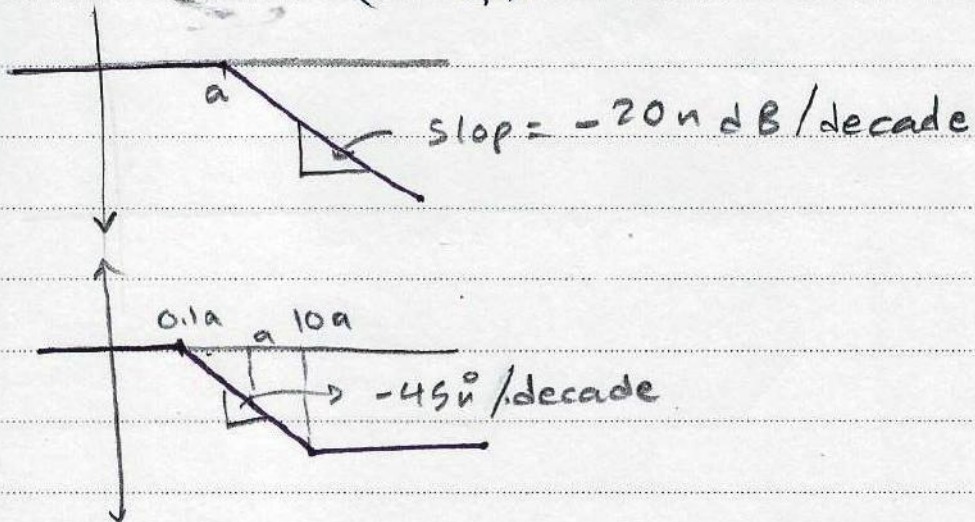 a
slop = -20n dB/decade
0.1a a 10a
-45n°/decade